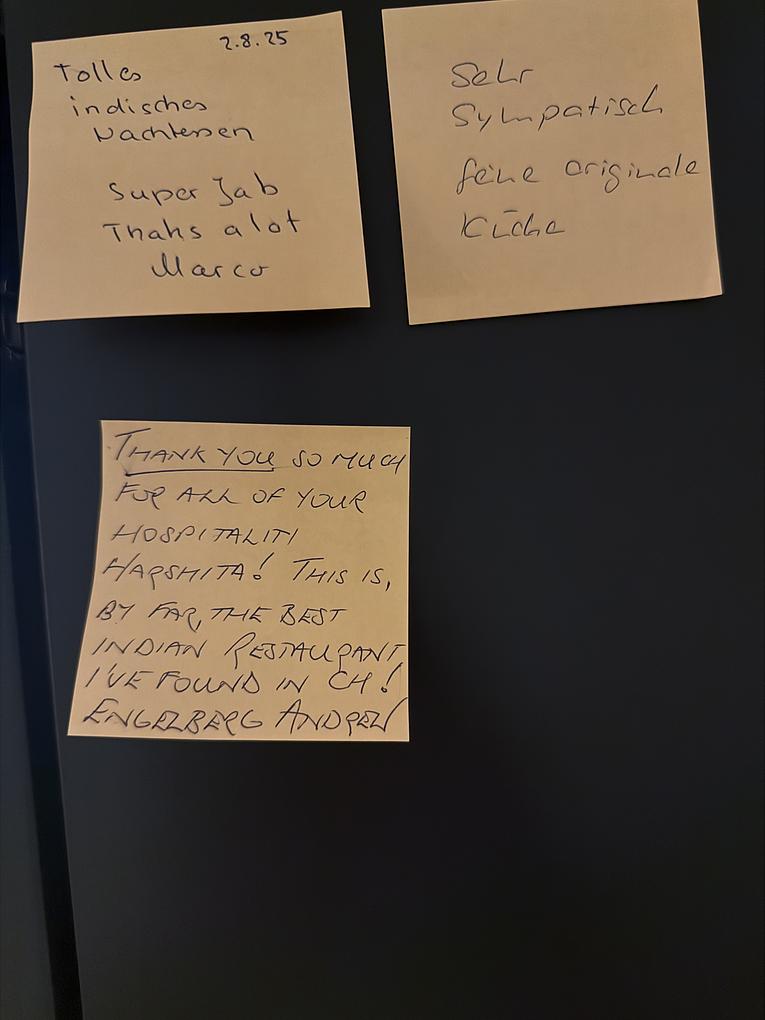 2.8.25
Tolles
indisches
Nachtessen
Super Jab
Thaks alot
Marco
Sehr
Sympatisch
feine originale
Küche
THANK YOU SO MUCH
FOR ALL OF YOUR
HOSPITALITI
HARSHITA! THIS IS,
BY FAR, THE BEST
INDIAN RESTAURANT
I'VE FOUND IN CH!
ENGELBERG ANDREW